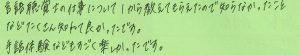 言語聴覚士の仕事について1から教えてもらえたので知らなかったこと
などたくさん知れて良かったです。
手話体験などもすごく楽しかったです。